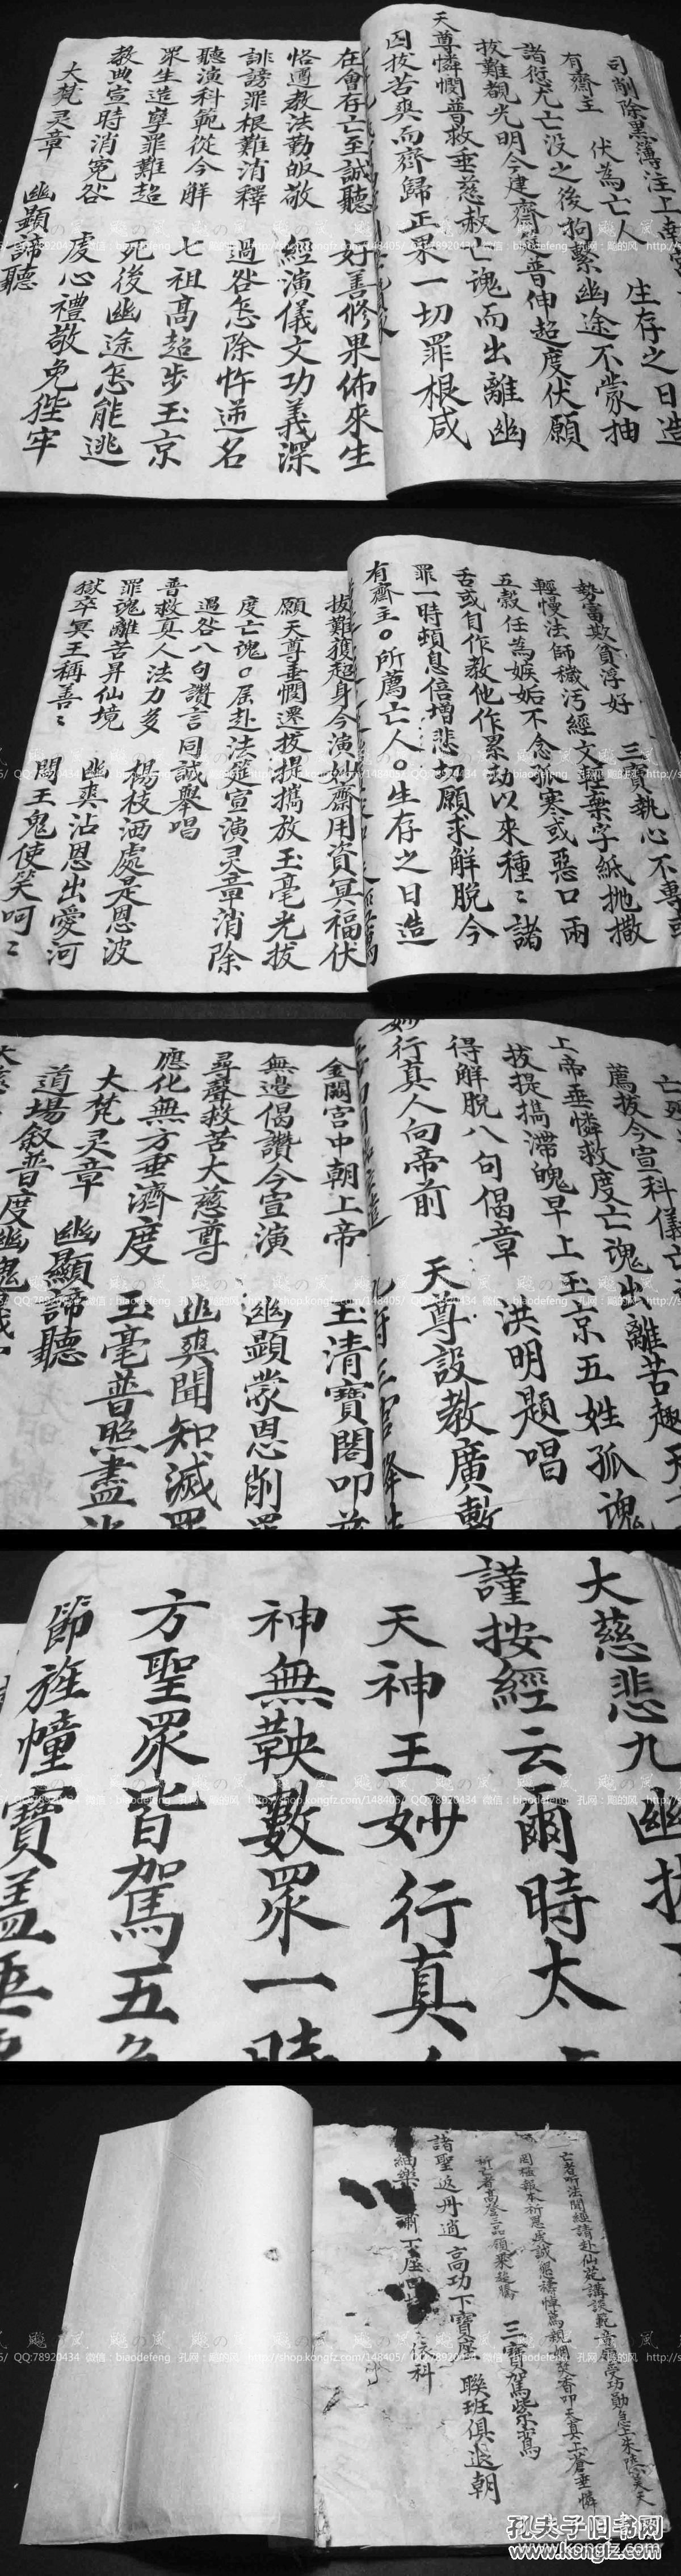 司削除黑薄注上南宮
有齋主 伏為亡人 生存之日造
諸愆尤亡没之後拘繫幽途不蒙抽
拔難覩光明今建齋 普伸超度伏願
天尊憐憫普救垂慈赦亡魂而出離幽
囚拔苦爽而齊歸正果一切罪根咸
在會存亡至誠聽 好善修果佈來生
恪遵教法勤皈敬 經演儀文功義深
誹謗罪根難消釋 過咎怎除忤逆名
聽演科範從今解 七祖高超步玉京
眾生造孽罪難超 死後幽途怎能逃
教典宣時消冤咎 虔心禮敬免狴牢
大梵灵章 幽顯諦聽
勢富欺貧浮好 三寶執心不專或
輕慢法師穢污經文輕棄字紙拋撒
五穀任為嫉妬不念孤寒或惡口兩
舌或自作教他作累劫以來種〻諸
罪一時頓息倍增悲切願求解脫今
有齋主〇所薦亡人〇生存之日造
拔難獲超身今演妙齋用資冥福伏
願天尊垂憫遷拔提攜放玉毫光拔
度亡魂〇屈赴法筵宣演灵章消除
過咎八句讚言同誠舉唱
普救真人法力多 楊枝洒處是恩波
罪魂離苦昇仙境 幽爽沾恩出愛河
獄卒冥王稱善〻 閻王鬼使笑呵〻
薦拔今宣科儀亡
上帝垂憐救度亡魂出離苦趣天
拔提攜滯魄早上玉京五姓孤魂
得解脫八句偈章 洪明題唱
妙行真人向帝前 天尊設教廣
金闕宮中朝上帝 玉清寶閣叩
無邉偈讚今宣演 幽顯蒙恩削罪
尋聲救苦大慈尊 幽爽聞知滅罪
應化無方垂濟度 玉毫普照盡
大梵灵章 幽顯諦聽
道場敘普度幽魂
大慈悲九幽拔
謹按經云爾時太
天神王妙行真人
神無鞅數眾一時
方聖眾皆駕五色
節旌幢寶蓋
亡者听法聞經請赴仙
罔極報本
祈亡者高登三品領眾超騰 三寶駕紫鸞
諸聖返丹逍 高功下寶座 聯班俱退朝
飚の风 QQ:78920434 微信：biaodefeng 孔网：飚的风 http://shop.kongfz.com/148405/
孔夫子旧书网
www.kongfz.com